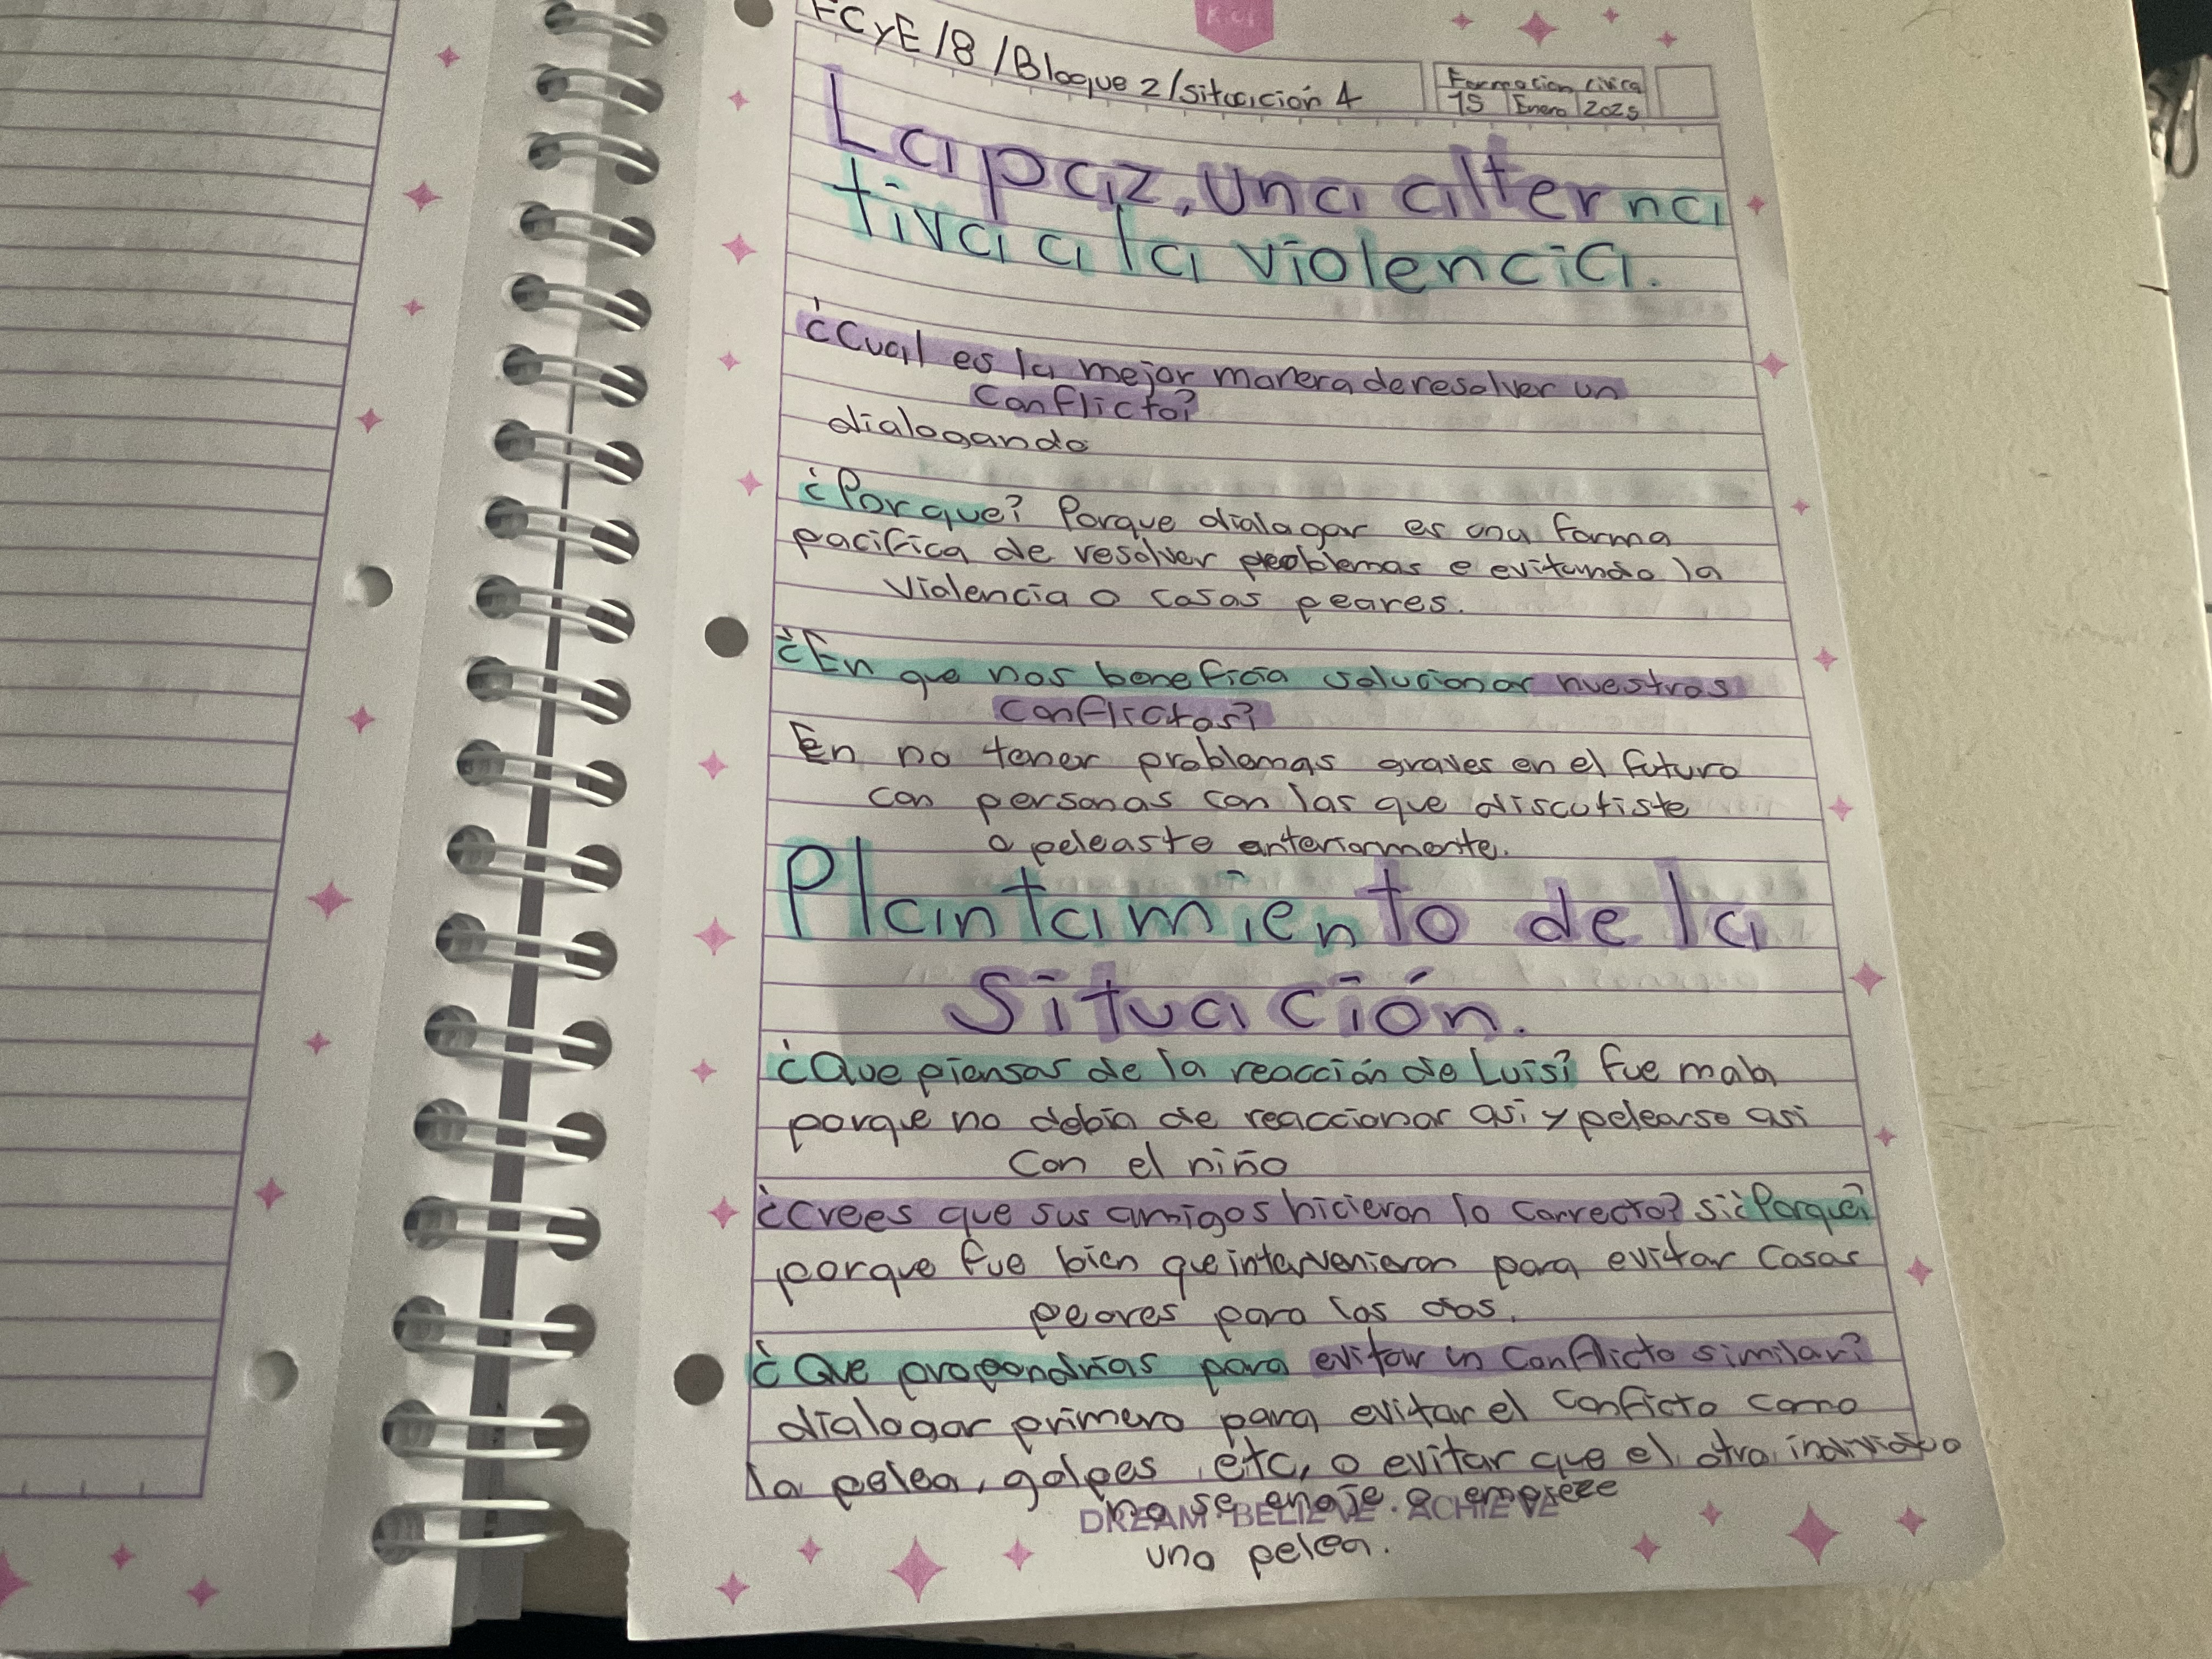 FCyE/8/Bloque 2/situación 4
Formacion civica
15 Enero 2025
La paz, una alterna
tiva a la violencia.
¿Cual es la mejor manera de resolver un
conflicto?
dialogando
¿Por que? Porque dialogar es una forma
pacifica de resolver problemas e evitando la
violencia o cosas peores.
¿En que nos beneficia solucionar nuestros
conflictos?
En no tener problemas graves en el futuro
con personas con las que discutiste
o peleaste anteriormente.
Plantamiento de la
situación.
¿Que piensas de la reacción de Luis? fue mala
porque no debia de reaccionar asi y pelearse asi
con el niño
¿Crees que sus amigos hicieron lo correcto? si ¿Porque?
porque fue bien que intervenieron para evitar cosas
peores para los dos.
¿Que propondrias para evitar un conflicto similar?
dialogar primero para evitar el conficto como
la pelea, golpes, etc, o evitar que el otro individuo
no se enoje o empieze
DREAM · BELIEVE · ACHIEVE
una pelea.